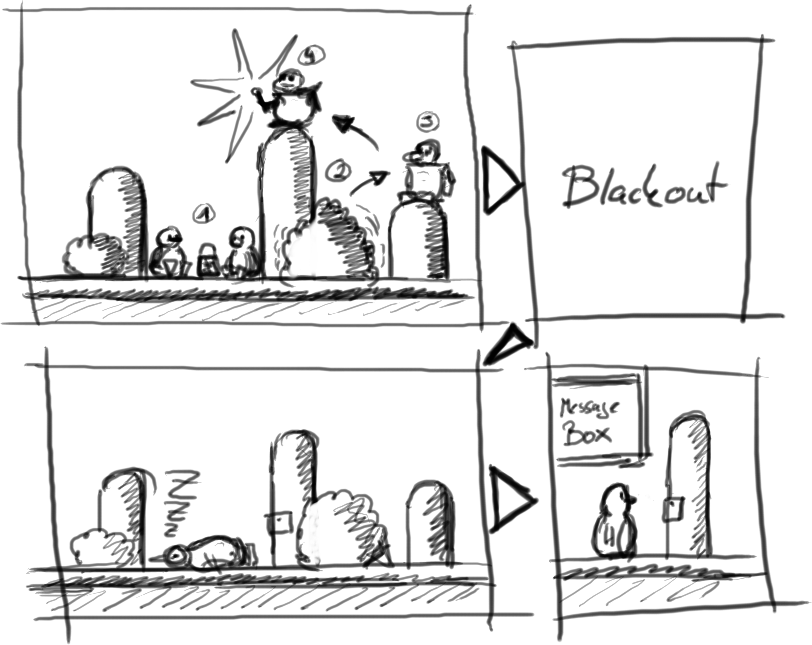 4
3
2
1
Blackout
Z
Z
Z
Z
Message
Box